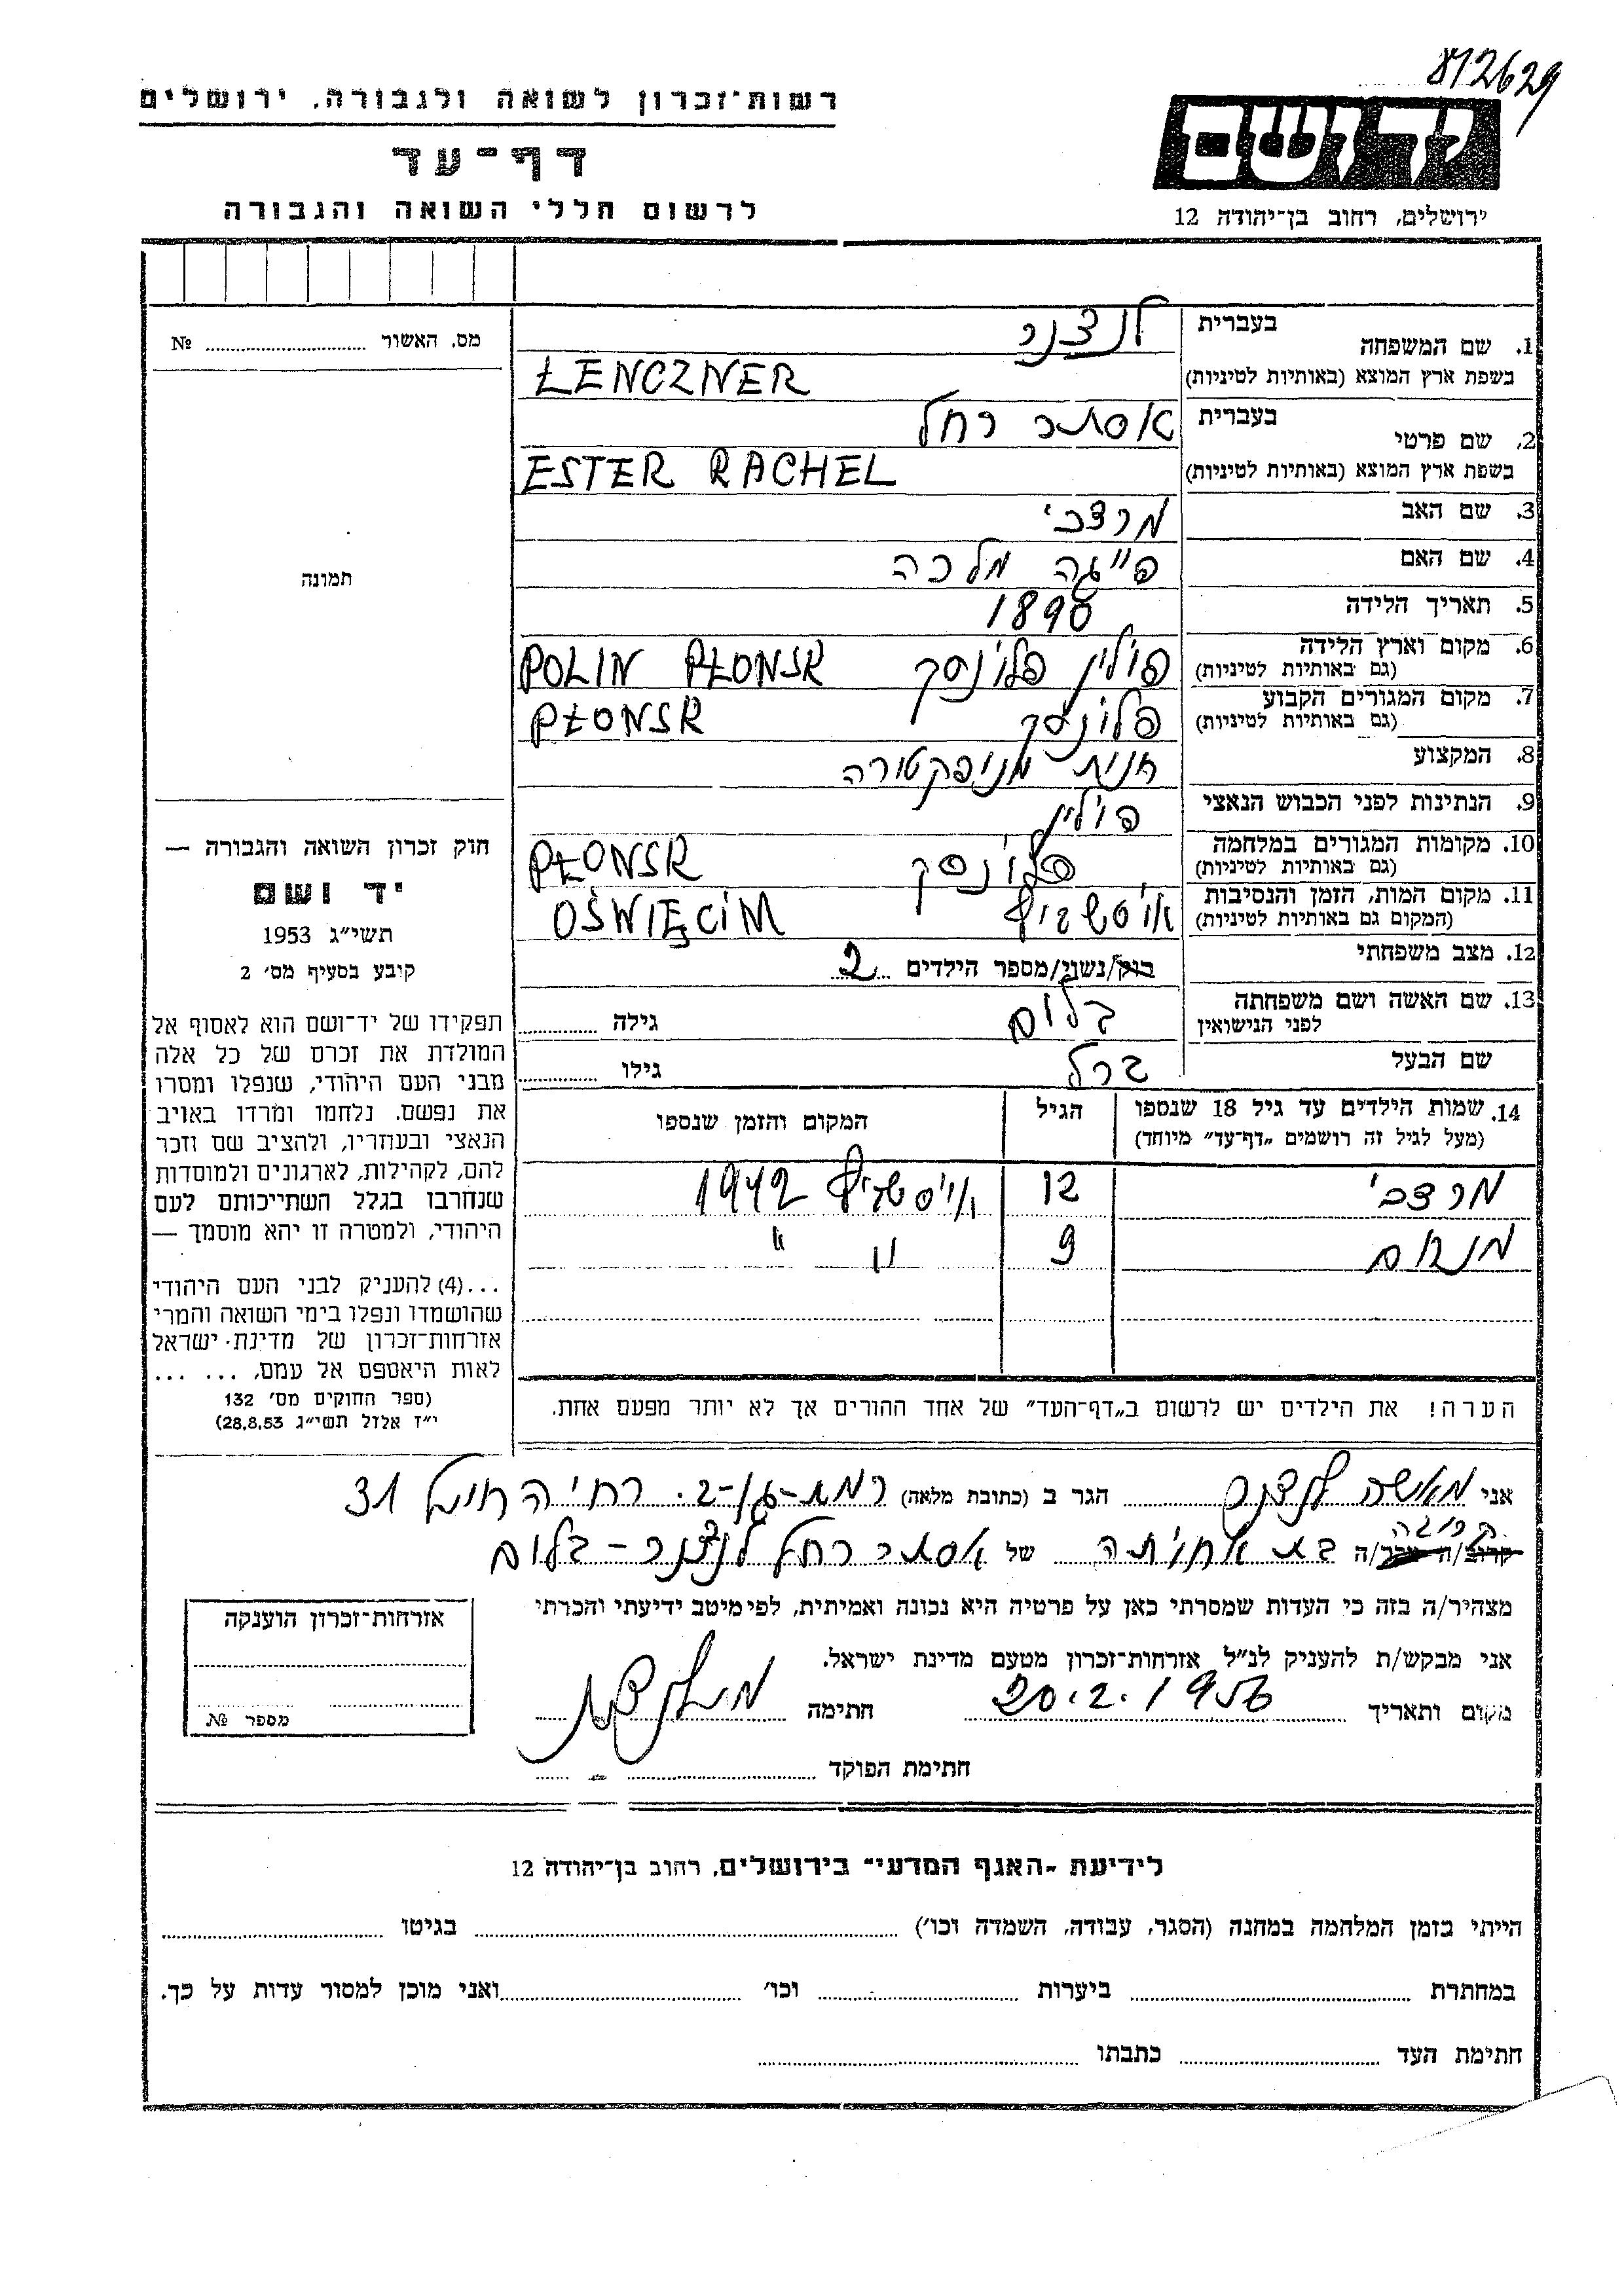 812629
רשות־זכרון לשואה ולגבורה, ירושלים
דף־עד
לרשום חללי השואה והגבורה
יד ושם
ירושלים, רחוב בן־יהודה 12
מס. האשור № 
תמונה
1. שם המשפחה
בעברית לנצנר
בשפת ארץ המוצא (באותיות לטיניות) ŁENCZNER
2. שם פרטי
בעברית אסתר רחל
בשפת ארץ המוצא (באותיות לטיניות) ESTER RACHEL
3. שם האב מרדכי
4. שם האם פייגה מלכה
5. תאריך הלידה 1890
6. מקום וארץ הלידה
(גם באותיות לטיניות) פולין פלונסק POLIN PŁONSK
7. מקום המגורים הקבוע
(גם באותיות לטיניות) פלונסק PŁONSK
8. המקצוע חנות מנופקטורה
9. הנתינות לפני הכבוש הנאצי פולין
10. מקומות המגורים במלחמה
(גם באותיות לטיניות) פלונסק PŁONSK
11. מקום המות, הזמן והנסיבות
(המקום גם באותיות לטיניות) OŚWIĘCIM
12. מצב משפחתי רווק/נשוי/מספר הילדים 2
13. שם האשה ושם משפחתה
לפני הנישואין בלום גילה
שם הבעל ברל גילו
14. שמות הילדים עד גיל 18 שנספו
(מעל לגיל זה רושמים „דף־עד” מיוחד)
הגיל
המקום והזמן שנספו
מרדכי 12 1942
מנחם 9 " "
הערה! את הילדים יש לרשום ב„דף־העד” של אחד ההורים אך לא יותר מפעם אחת.
חוק זכרון השואה והגבורה —
יד ושם
תשי״ג 1953
קובע בסעיף מס׳ 2
תפקידו של יד־ושם הוא לאסוף אל
המולדת את זכרם של כל אלה
מבני העם היהודי, שנפלו ומסרו
את נפשם, נלחמו ומרדו באויב
הנאצי ובעוזריו, ולהציב שם וזכר
להם, לקהילות, לארגונים ולמוסדות
שנחרבו בגלל השתייכותם לעם
היהודי, ולמטרה זו יהא מוסמך —
...(4) להעניק לבני העם היהודי
שהושמדו ונפלו בימי השואה והמרי
אזרחות־זכרון של מדינת־ישראל
לאות היאספם אל עמם, ... ...
(ספר החוקים מס׳ 132
י״ז אלול תשי״ג 28.8.53)
אני מאשה לנצנר הגר ב (כתובת מלאה) רמת-גן-ב. רח׳ 31
קרובה
קרוב/ה מכר/ה בת אחותה של אסתר רחל לנצנר - בלום
מצהיר/ה בזה כי העדות שמסרתי כאן על פרטיה היא נכונה ואמיתית, לפי מיטב ידיעתי והכרתי
אני מבקש/ת להעניק לנ״ל אזרחות־זכרון מטעם מדינת ישראל.
מקום ותאריך 20.2.1956 חתימה
חתימת הפוקד
אזרחות־זכרון הוענקה
מספר №
לידיעת „האגף המדעי” בירושלים, רחוב בן־יהודה 12
הייתי בזמן המלחמה במחנה (הסגר, עבודה, השמדה וכו׳) בגיטו
במחתרת ביערות וכו׳ ואני מוכן למסור עדות על כך.
חתימת העד כתבתו